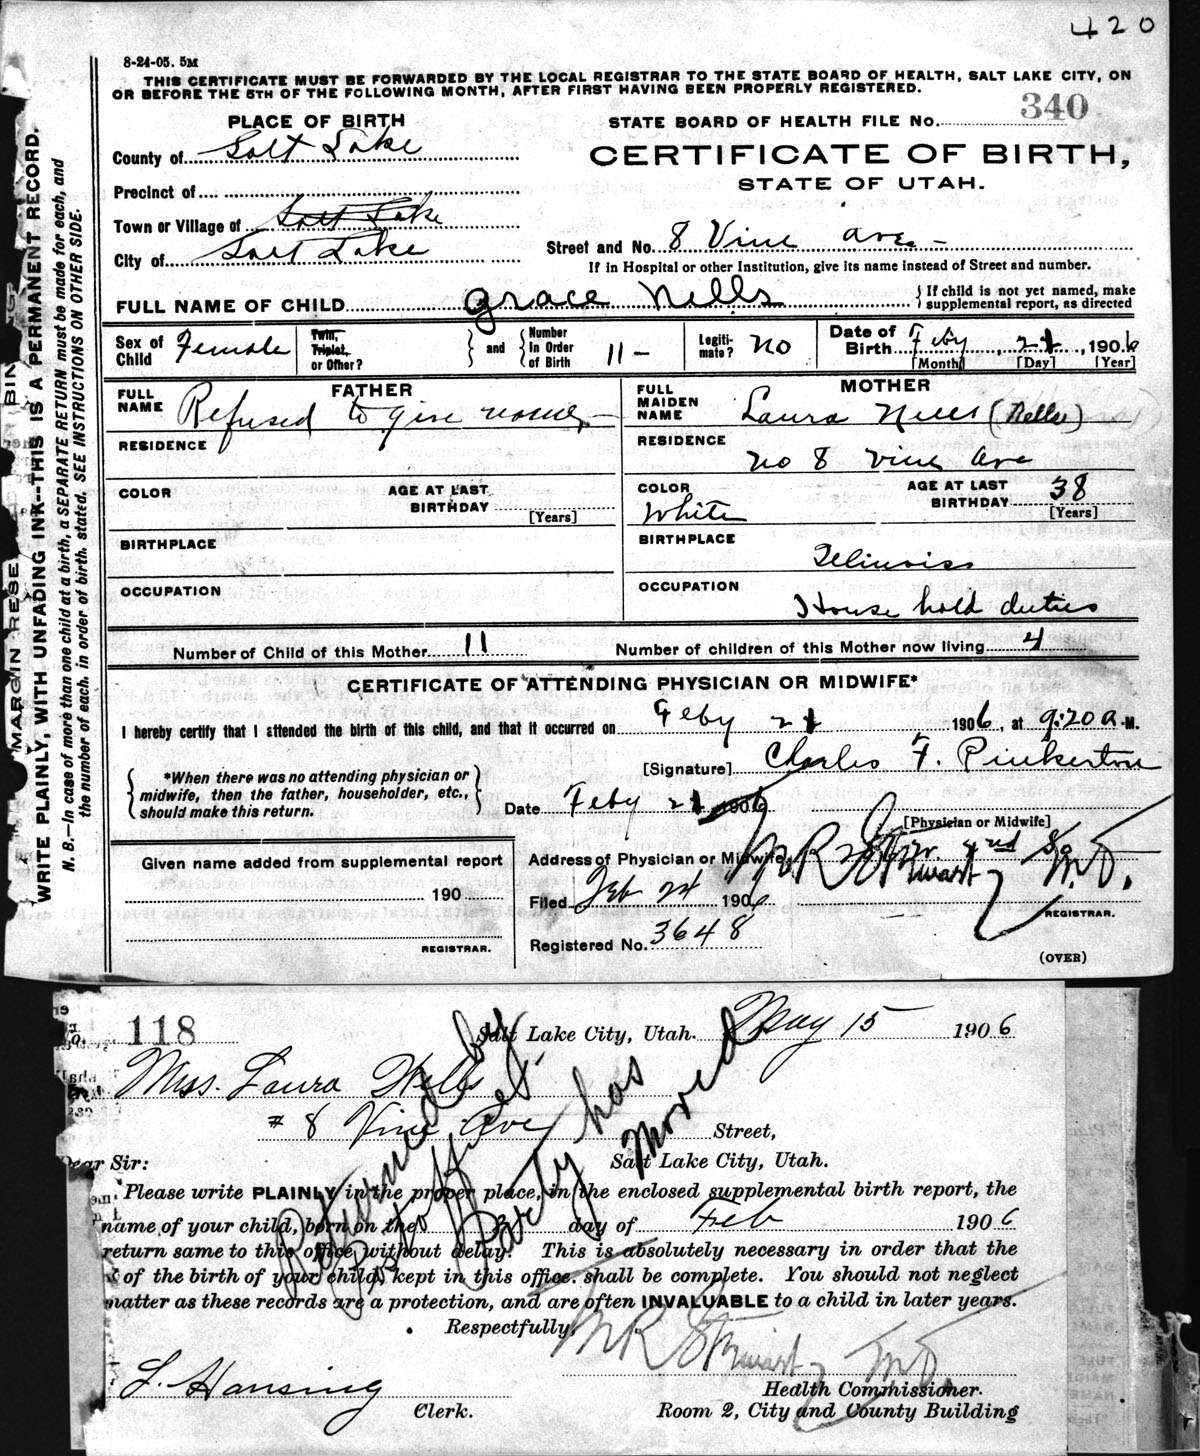 420
8-24-05. 5M
THIS CERTIFICATE MUST BE FORWARDED BY THE LOCAL REGISTRAR TO THE STATE BOARD OF HEALTH, SALT LAKE CITY, ON
OR BEFORE THE 5TH OF THE FOLLOWING MONTH, AFTER FIRST HAVING BEEN PROPERLY REGISTERED.
PLACE OF BIRTH
STATE BOARD OF HEALTH FILE No. 340
County of Salt Lake
CERTIFICATE OF BIRTH,
STATE OF UTAH.
Precinct of
Town or Village of Salt Lake
City of Salt Lake
Street and No. 8 Vine Ave. -
If in Hospital or other Institution, give its name instead of Street and number.
FULL NAME OF CHILD Grace Nells
If child is not yet named, make
supplemental report, as directed
Sex of Child Female
Twin, Triplet, or Other?
and
Number In Order of Birth 11 -
Legiti-mate? No
Date of Birth Feby 21, 1906
[Month] [Day] [Year]
FATHER
FULL NAME Refused to give name -
RESIDENCE
COLOR
AGE AT LAST BIRTHDAY
[Years]
BIRTHPLACE
OCCUPATION
MOTHER
FULL MAIDEN NAME Laura Nells (Nells)
RESIDENCE
No 8 Vine Ave
COLOR White
AGE AT LAST BIRTHDAY 38
[Years]
BIRTHPLACE
Illinoiss
OCCUPATION
House hold duties
Number of Child of this Mother 11
Number of children of this Mother now living 4
CERTIFICATE OF ATTENDING PHYSICIAN OR MIDWIFE*
I hereby certify that I attended the birth of this child, and that it occurred on Feby 21 1906, at 9:20 A.M.
[Signature] Charles F. Pinkerton
*When there was no attending physician or
midwife, then the father, householder, etc.,
should make this return.
Date Feby 21 1906
[Physician or Midwife]
Given name added from supplemental report
190
REGISTRAR.
Address of Physician or Midwife 2nd So
Filed Feb 24 1906
M R Stewart M.D.
REGISTRAR.
Registered No. 3648
(OVER)
MARGIN RESE BIN
WRITE PLAINLY, WITH UNFADING INK--THIS IS A PERMANENT RECORD.
N. B.—In case of more than one child at a birth, a SEPARATE RETURN must be made for each, and
the number of each, in order of birth, stated. SEE INSTRUCTIONS ON OTHER SIDE.
118
Salt Lake City, Utah. May 15 1906
Miss. Laura Wells
# 8 Vine Ave Street,
Dear Sir:
Salt Lake City, Utah.
Please write PLAINLY in the proper place, in the enclosed supplemental birth report, the
name of your child, born on the day of Feb 1906
return same to this office without delay. This is absolutely necessary in order that the
of the birth of your child, kept in this office, shall be complete. You should not neglect
matter as these records are a protection, and are often INVALUABLE to a child in later years.
Respectfully,
M R Stewart M.D.
L. Hansing
Clerk.
Health Commissioner.
Room 2, City and County Building
Returned by
Postoffice
Party has
Moved